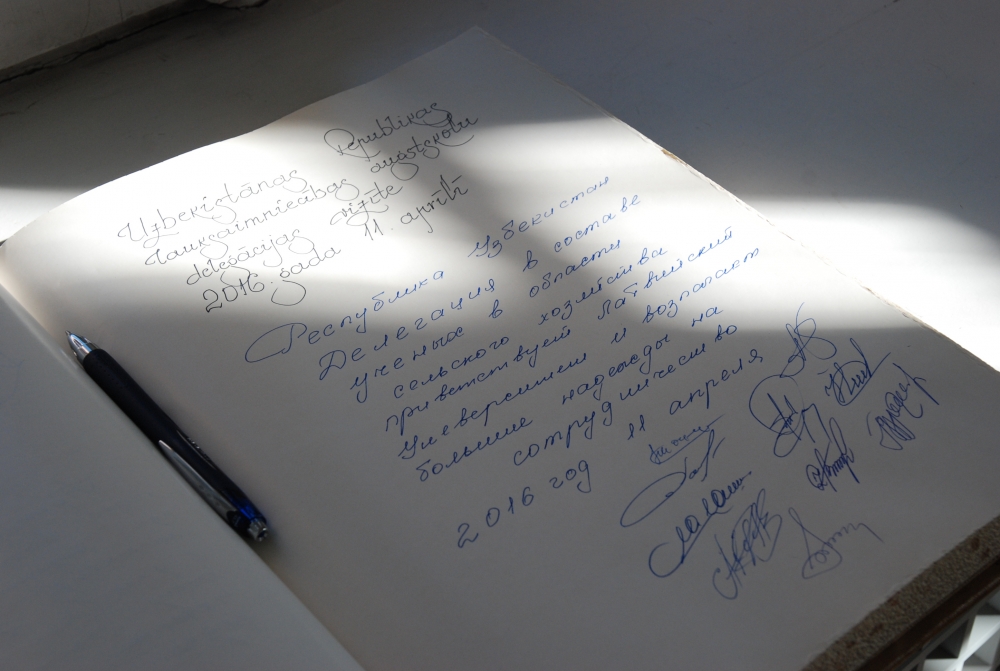 Uzbekistānas Republikas
lauksaimniecības augstskolu
delegācijas vizīte
2016. gada 11. aprīlī
Республика Узбекистан
Делегация в составе
ученых в области
сельского хозяйства
приветствует Латвийский
Университет и возлагает
большие надежды на
сотрудничество
2016 год 11 апреля